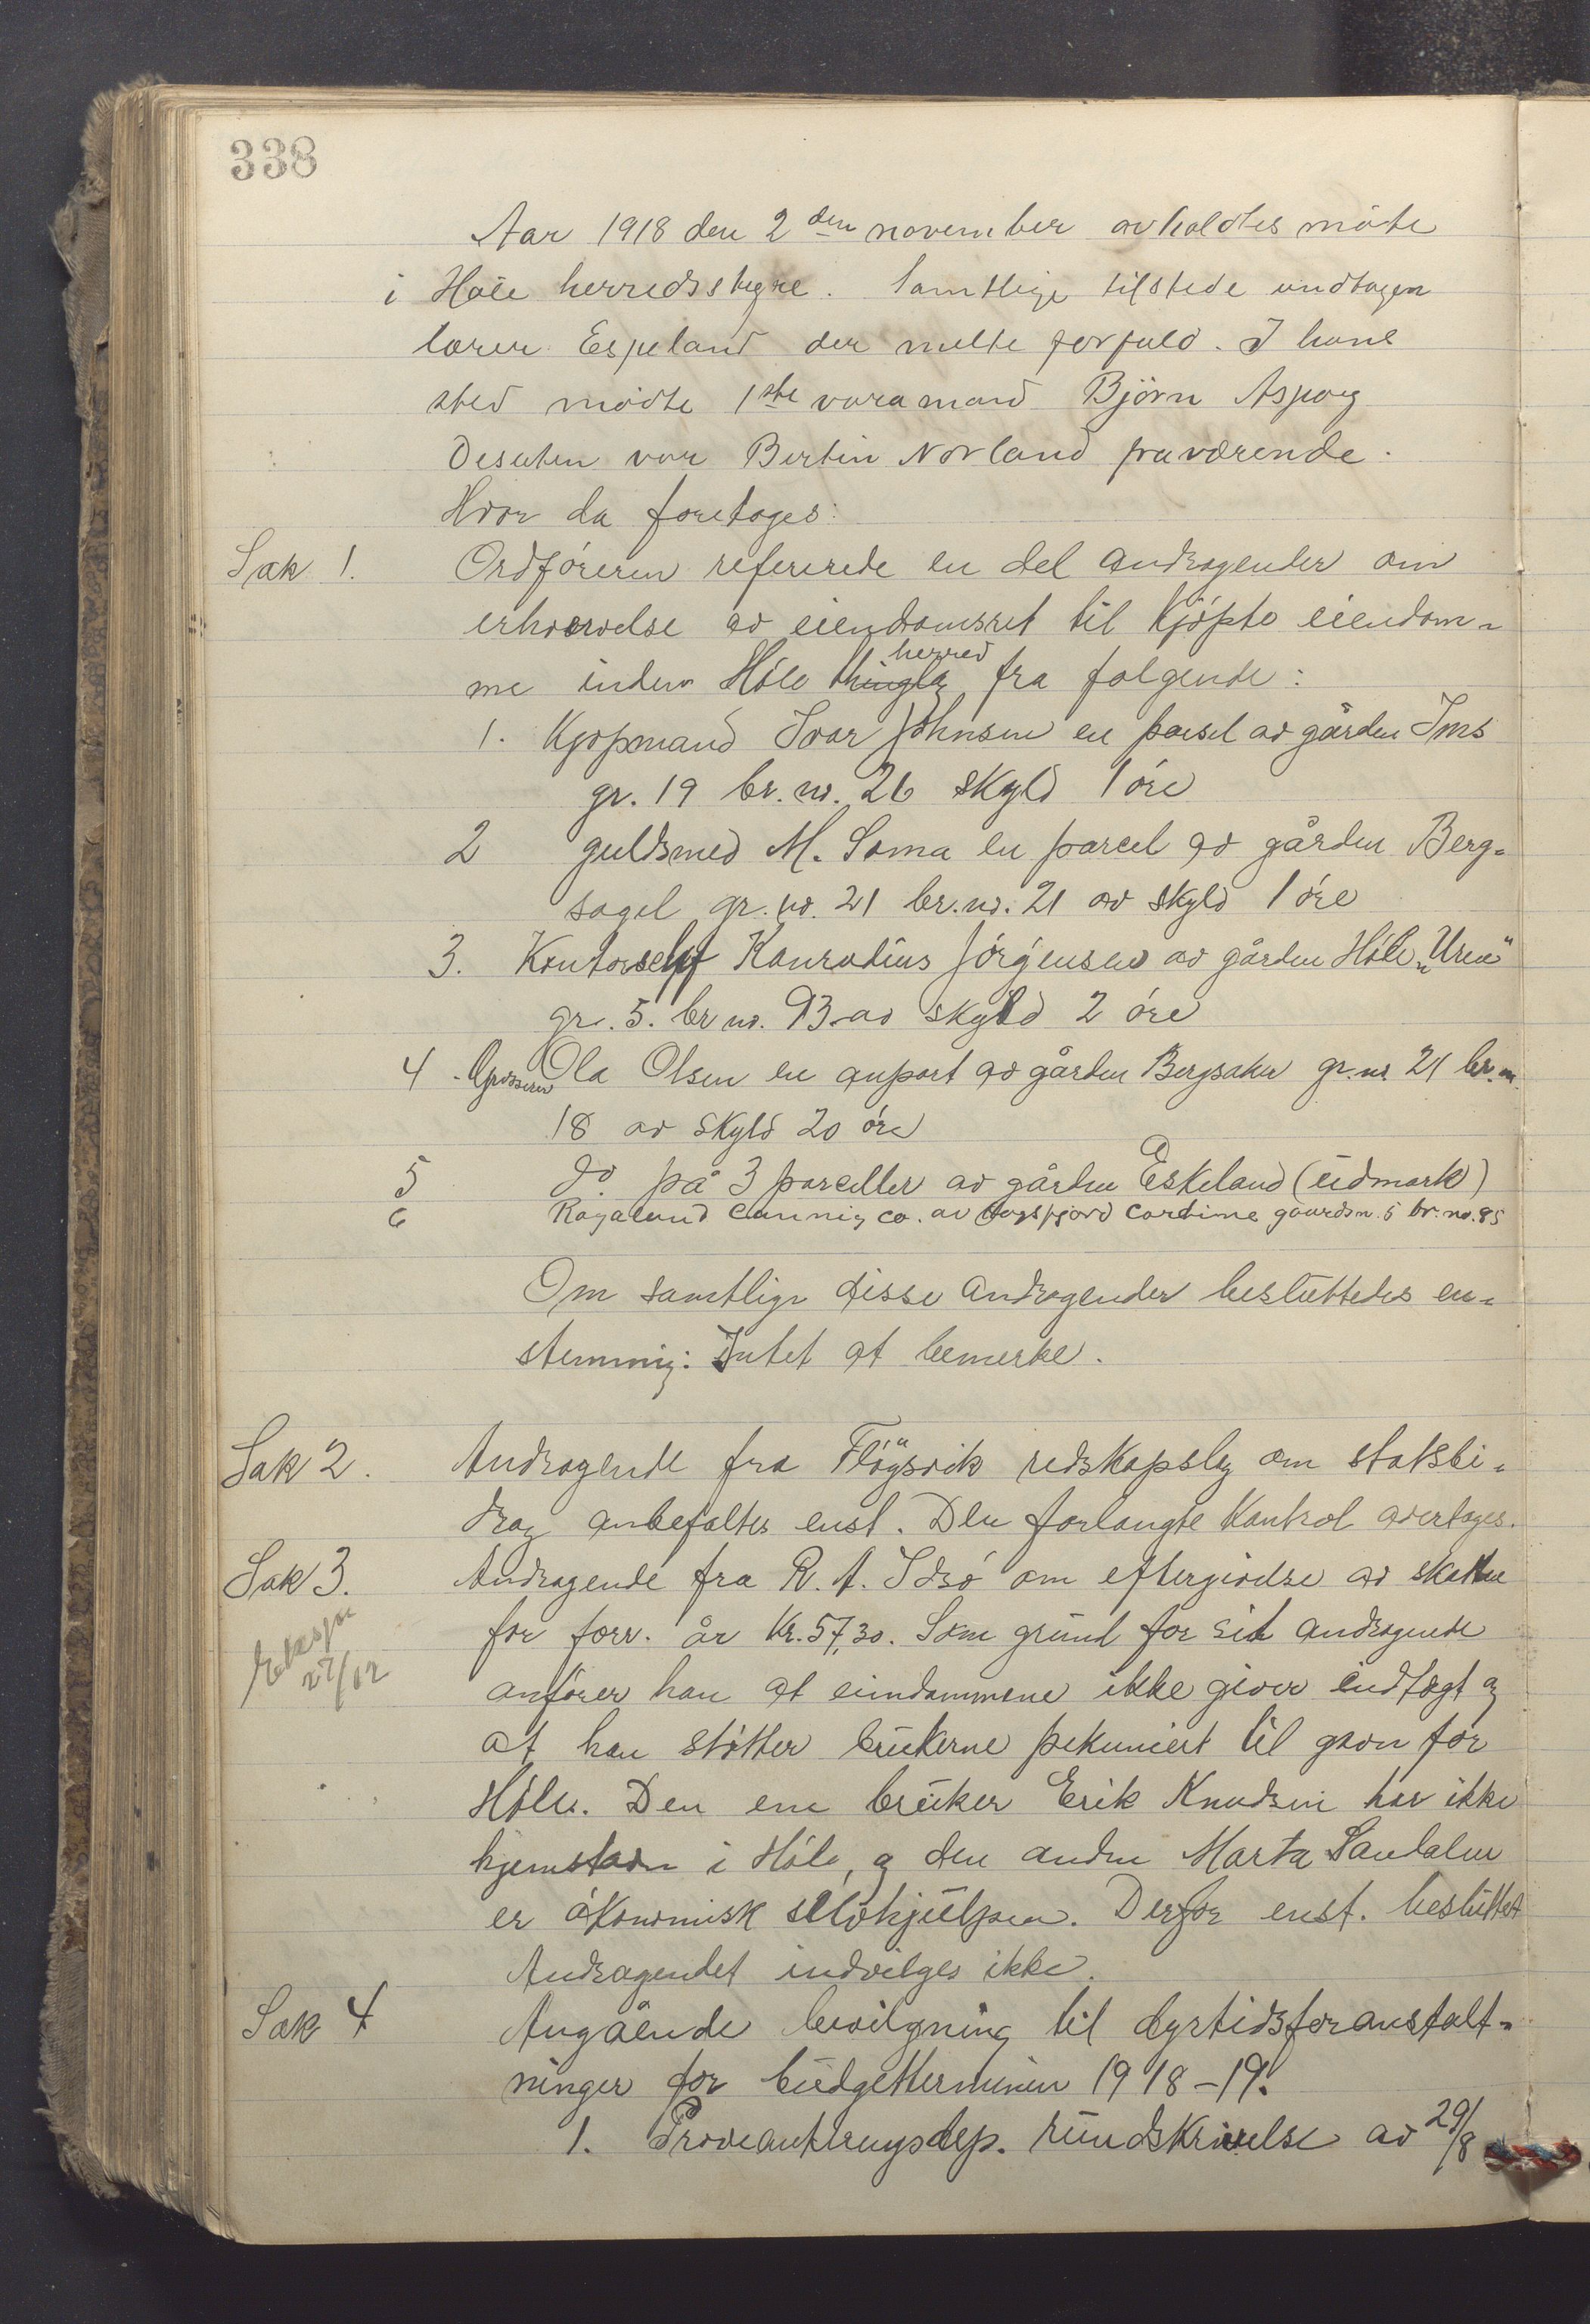 338
Aar 1918 den 2den november avholdtes møte
i Høle herredsstyre. Samtlige tilstede undtagen
lærer Espeland der melte forfald. I hans
sted mødte 1ste varamand Björn Aspøy
Desuten var Bertin Norland fraværende.
Hvor da foretages:
Sak 1. Ordföreren refererede en del andragender om
erhvervelse av eiendomsret til kjöpte eiendom-
me inden Höle thinglag herred fra følgende:
1. Kjøpmand Ivar Johnsen en parsel av gården Ims
gr. 19 br. nr. 26 skyld 1 öre
2 guldsmed M. Soma en parcel av gården Berg-
sagel gr. nr. 21 br. nr. 21 av skyld 1 öre
3. Kontorchef Konradius Jörgensen av gården Höle „Uren"
gr. 5. br nr. 93 av skyld 2 öre
4. Grosserer Ola Olsen en anpart av gården Bergsaker gr. nr 21 br. nr
18 av skyld 20 öre
5 do på 3 parceller av gården Eskeland (utmark)
6 Rogaland Canning co. av Høgsfjord Cardine gaardsn. 5 br. nr. 85
Om samtlige disse andragender besluttedes en-
stemmig: Intet at bemerke.
Sak 2. Andragende fra Fløysvik redskapslag om statsbi-
drag anbefaltes enst. Den forlangte kontrol overtages.
Sak 3. Andragende fra R. A. Idsö om eftergivelse av skatten
for forr. år kr. 57,30. Som grund for sit andragende
Ekspr 27/12
anförer han at eiendommene ikke giver indtægt og
at han stötter brukerne pekuniert til gavn for
Höle. Den ene bruker Erik Knudsen har ikke
hjemstavn i Höle, og den anden Marta Sandalen
er ökonomisk selvhjulpen. Derfor enst. besluttet
Andragendet indvilges ikke.
Sak 4 Angående bevilgning til dyrtidsforanstalt-
ninger for budgetterminen 1918-19.
1. Provianteringsdep. rundskrivelse av 29/8